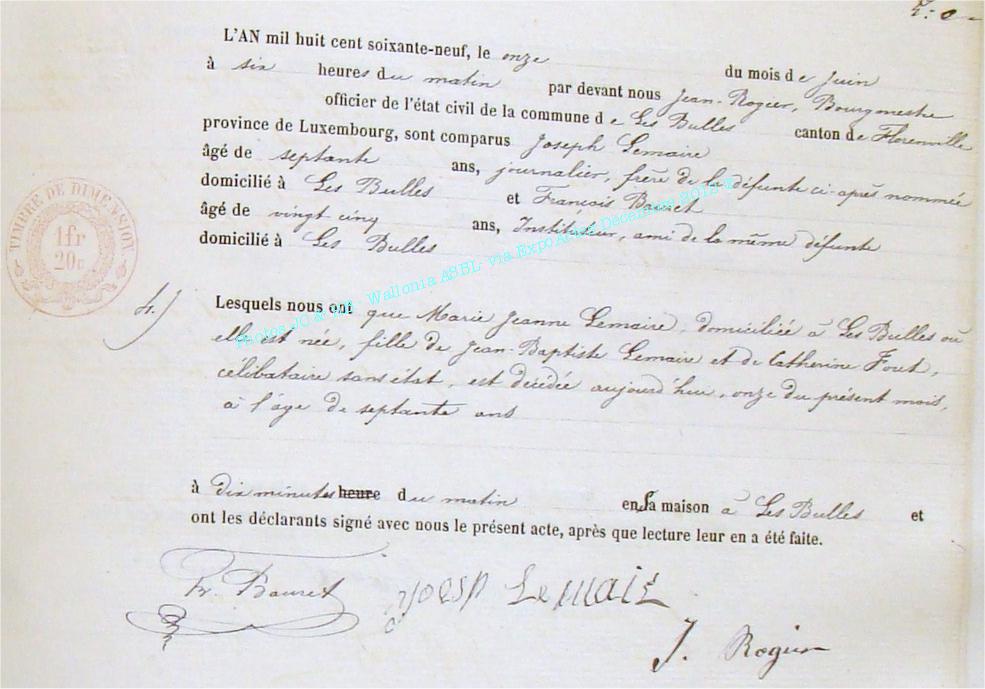 L'AN mil huit cent soixante-neuf, le onze du mois de Juin
à six heures du matin par devant nous Jean-Rogier, Bourgmestre
officier de l'état civil de la commune de Les Bulles canton de Florenville
province de Luxembourg, sont comparus Joseph Lemaire
âgé de septante ans, journalier, frère de la défunte ci-après nommée
domicilié à Les Bulles et François Bauret
âgé de vingt cinq ans, Instituteur, ami de la même défunte
domicilié à Les Bulles
TIMBRE DE DIMENSION
1fr
20c
4.)
Lesquels nous ont que Marie Jeanne Lemaire, domiciliée à Les Bulles où
elle est née, fille de Jean-Baptiste Lemaire et de Catherine Fout,
célibataire sans état, est décédée aujourd'hui, onze du présent mois,
à l'âge de septante ans
à dix minutes heure du matin en sa maison à Les Bulles et
ont les déclarants signé avec nous le présent acte, après que lecture leur en a été faite.
Fr. Bauret
Joesp Lemair
J. Rogier
Photos JC & MA Wallonia ASBL via Expo Arlon Décembre 2013